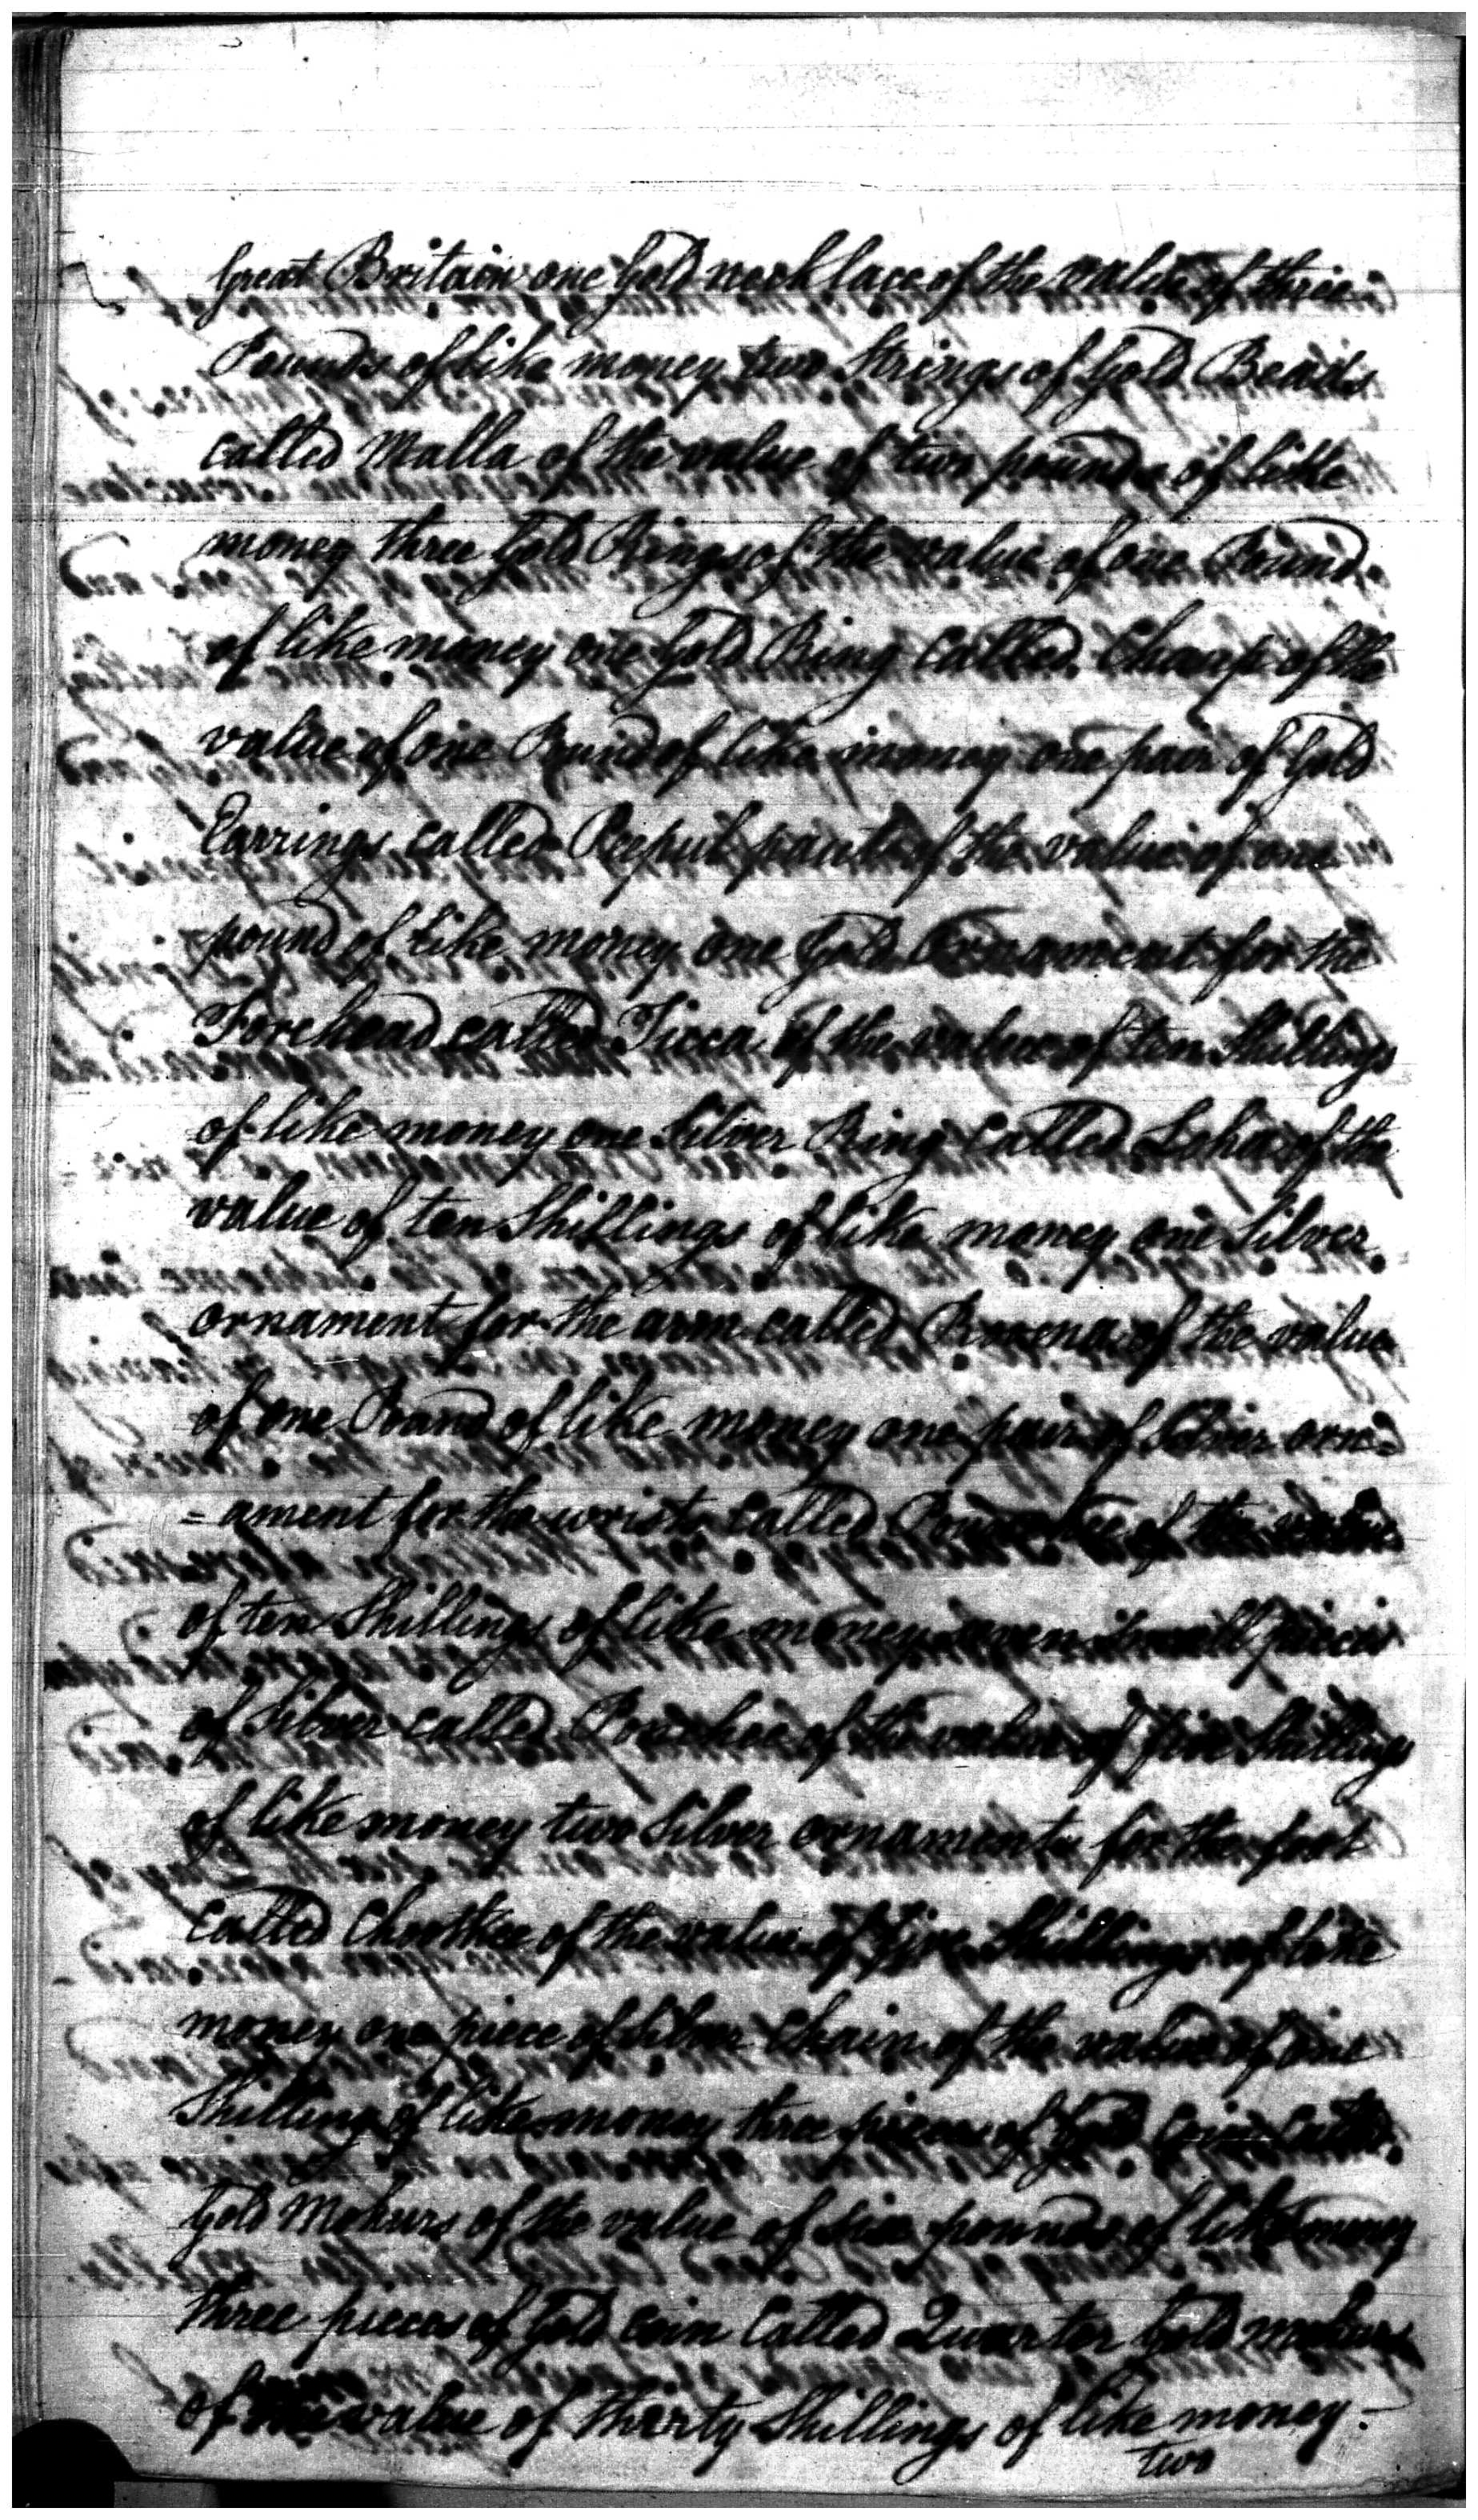 Great Britain one Gold necklace of the value of three
Pounds of like money two Strings of Gold Beads
called Malla of the value of two pounds of like
money three Gold Rings of the value of one Pound
of like money one Gold Ring called Champ of the
value of one Pound of like money one pair of Gold
Earrings called Peepul of the value of one
pound of like money one Gold Ornament for the
Forehead called Ticca of the value of ten Shillings
of like money one Silver Ring called Loha of the
value of ten Shillings of like money one Silver
ornament for the arm called of the value
of one Pound of like money one pair of Silver orn=
=ament for the wrists called of the value
of ten Shillings of like money seven small pieces
of Silver called of the value of five Shillings
of like money two Silver ornaments for the foot
called Chootkee of the value of five Shillings of like
money one piece of Silver Chain of the value of one
Shilling of like money three pieces of Gold Coin Called
Gold Mohurs of the value of six pounds of like money
three pieces of Gold coin Called Quarter Gold mohurs
of the value of thirty Shillings of like money -
two